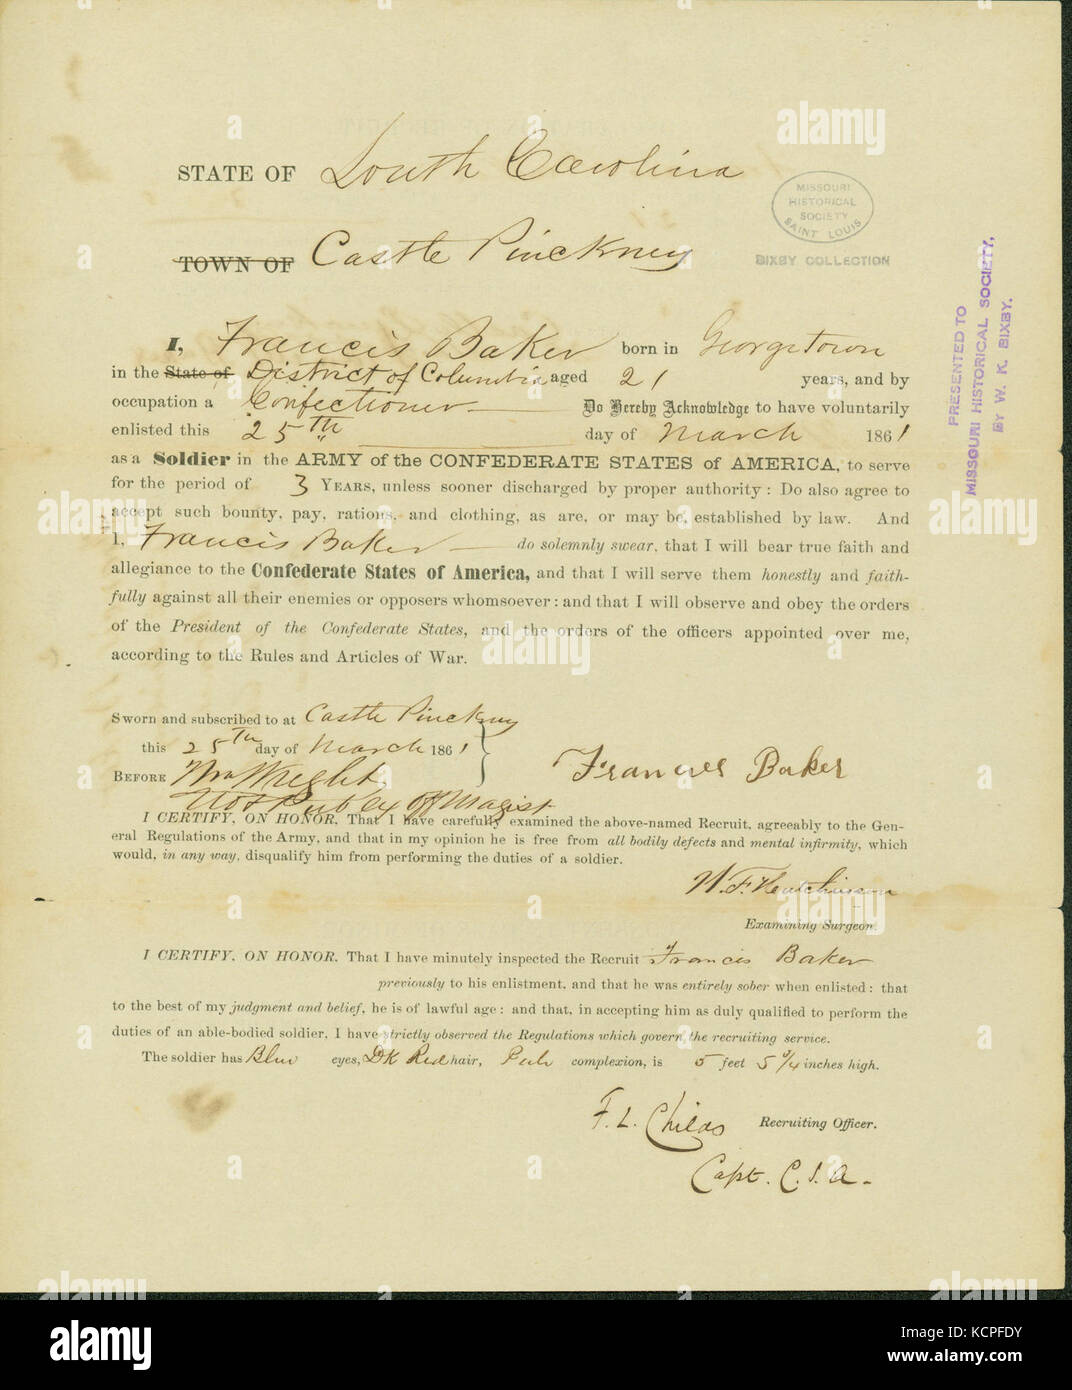 STATE OF South Carolina
TOWN OF Castle Pinckney
MISSOURI
HISTORICAL
SOCIETY
SAINT LOUIS
BIXBY COLLECTION
PRESENTED TO
MISSOURI HISTORICAL SOCIETY,
BY W. K. BIXBY.
I, Francis Baker born in Georgetown
in the State of District of Columbia aged 21 years, and by
occupation a Confectioner Do Hereby Acknowledge to have voluntarily
enlisted this 25th day of March 1861
as a Soldier in the ARMY of the CONFEDERATE STATES of AMERICA, to serve
for the period of 3 YEARS, unless sooner discharged by proper authority: Do also agree to
accept such bounty, pay, rations, and clothing, as are, or may be, established by law. And
I, Francis Baker do solemnly swear, that I will bear true faith and
allegiance to the Confederate States of America, and that I will serve them honestly and faith-
fully against all their enemies or opposers whomsoever: and that I will observe and obey the orders
of the President of the Confederate States, and the orders of the officers appointed over me,
according to the Rules and Articles of War.
Sworn and subscribed to at Castle Pinckney
this 25th day of March 1861
BEFORE Wm Wright
Not Pub Ex Off Magist
Frances Baker
I CERTIFY, ON HONOR, That I have carefully examined the above-named Recruit, agreeably to the Gen-
eral Regulations of the Army, and that in my opinion he is free from all bodily defects and mental infirmity, which
would, in any way, disqualify him from performing the duties of a soldier.
W. F. Hutchinson
Examining Surgeon.
I CERTIFY, ON HONOR, That I have minutely inspected the Recruit Francis Baker
previously to his enlistment, and that he was entirely sober when enlisted: that
to the best of my judgment and belief, he is of lawful age: and that, in accepting him as duly qualified to perform the
duties of an able-bodied soldier, I have strictly observed the Regulations which govern the recruiting service.
The soldier has Blue eyes, Dk Red hair, Pale complexion, is 5 feet 5 3/4 inches high.
F. L. Childs Recruiting Officer.
Capt. C.S.A.
alamy
Image ID: KCPFDY
www.alamy.com